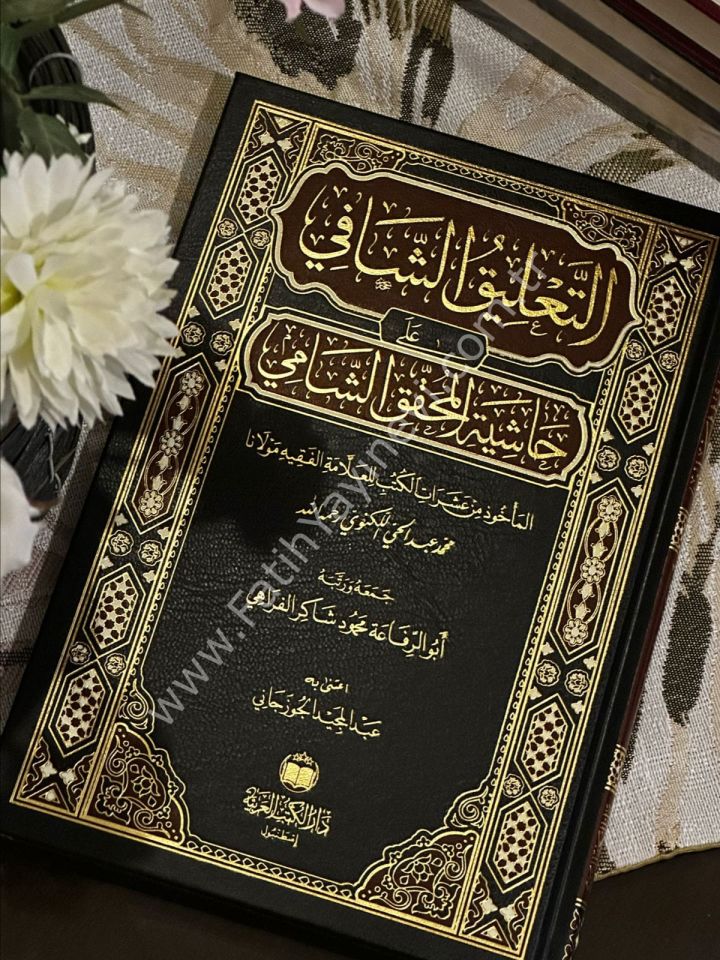 التَّعْلِيقُ الشَّافِي
عَلَى
حَاشِيَةِ المُحَقِّقِ الشَّامِي
المَأخُوذ مِنْ عَشَرَاتِ الكُتُبِ لِلعَلَّامَةِ الفَقِيهِ مَوْلَانَا
محمّد عبد الحي اللكنوي رحمه الله
جَمَعَهُ وَرَتَّبَهُ
أَبُو الرِّفَاعَة مَحْمُود شَاكِر الفَرَاهِي
اعتنى به
عَبْد المَجِيد الجُوزجَاني
دَارُ الكُتُبِ العَرَبِيَّة
إسطنبول
www.FatihYayinevi.com.tr